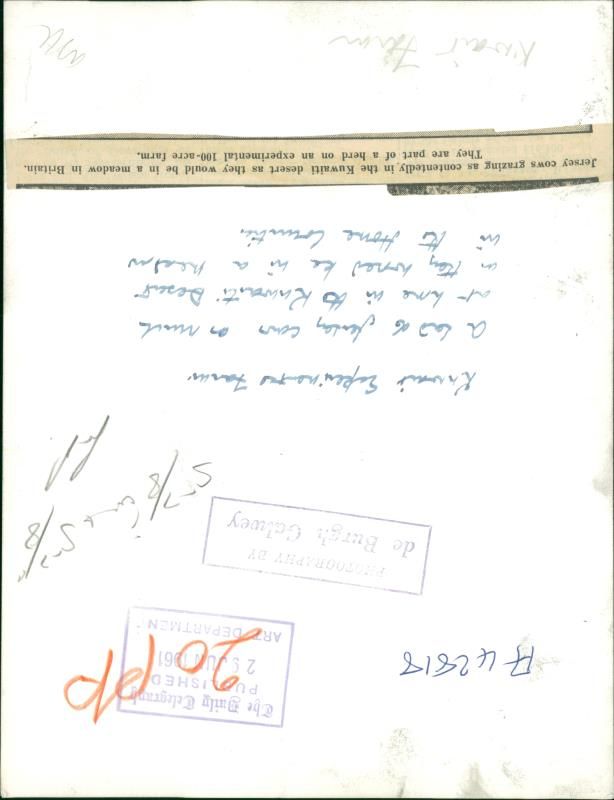 A42818
The Daily Telegraph
PUBLISHED
29 JUN 1961
ART DEPARTMENT
20 pp
PHOTOGRAPHY BY
de Burgh Galwey
Kuwait Experimental Farm.
A lot of Jersey cows as much
at home in the Kuwaiti Desert
as they would be in a meadow
in the Home Counties.
Jersey cows grazing as contentedly in the Kuwaiti desert as they would be in a meadow in Britain.
They are part of a herd on an experimental 100-acre farm.
Kuwait Farm